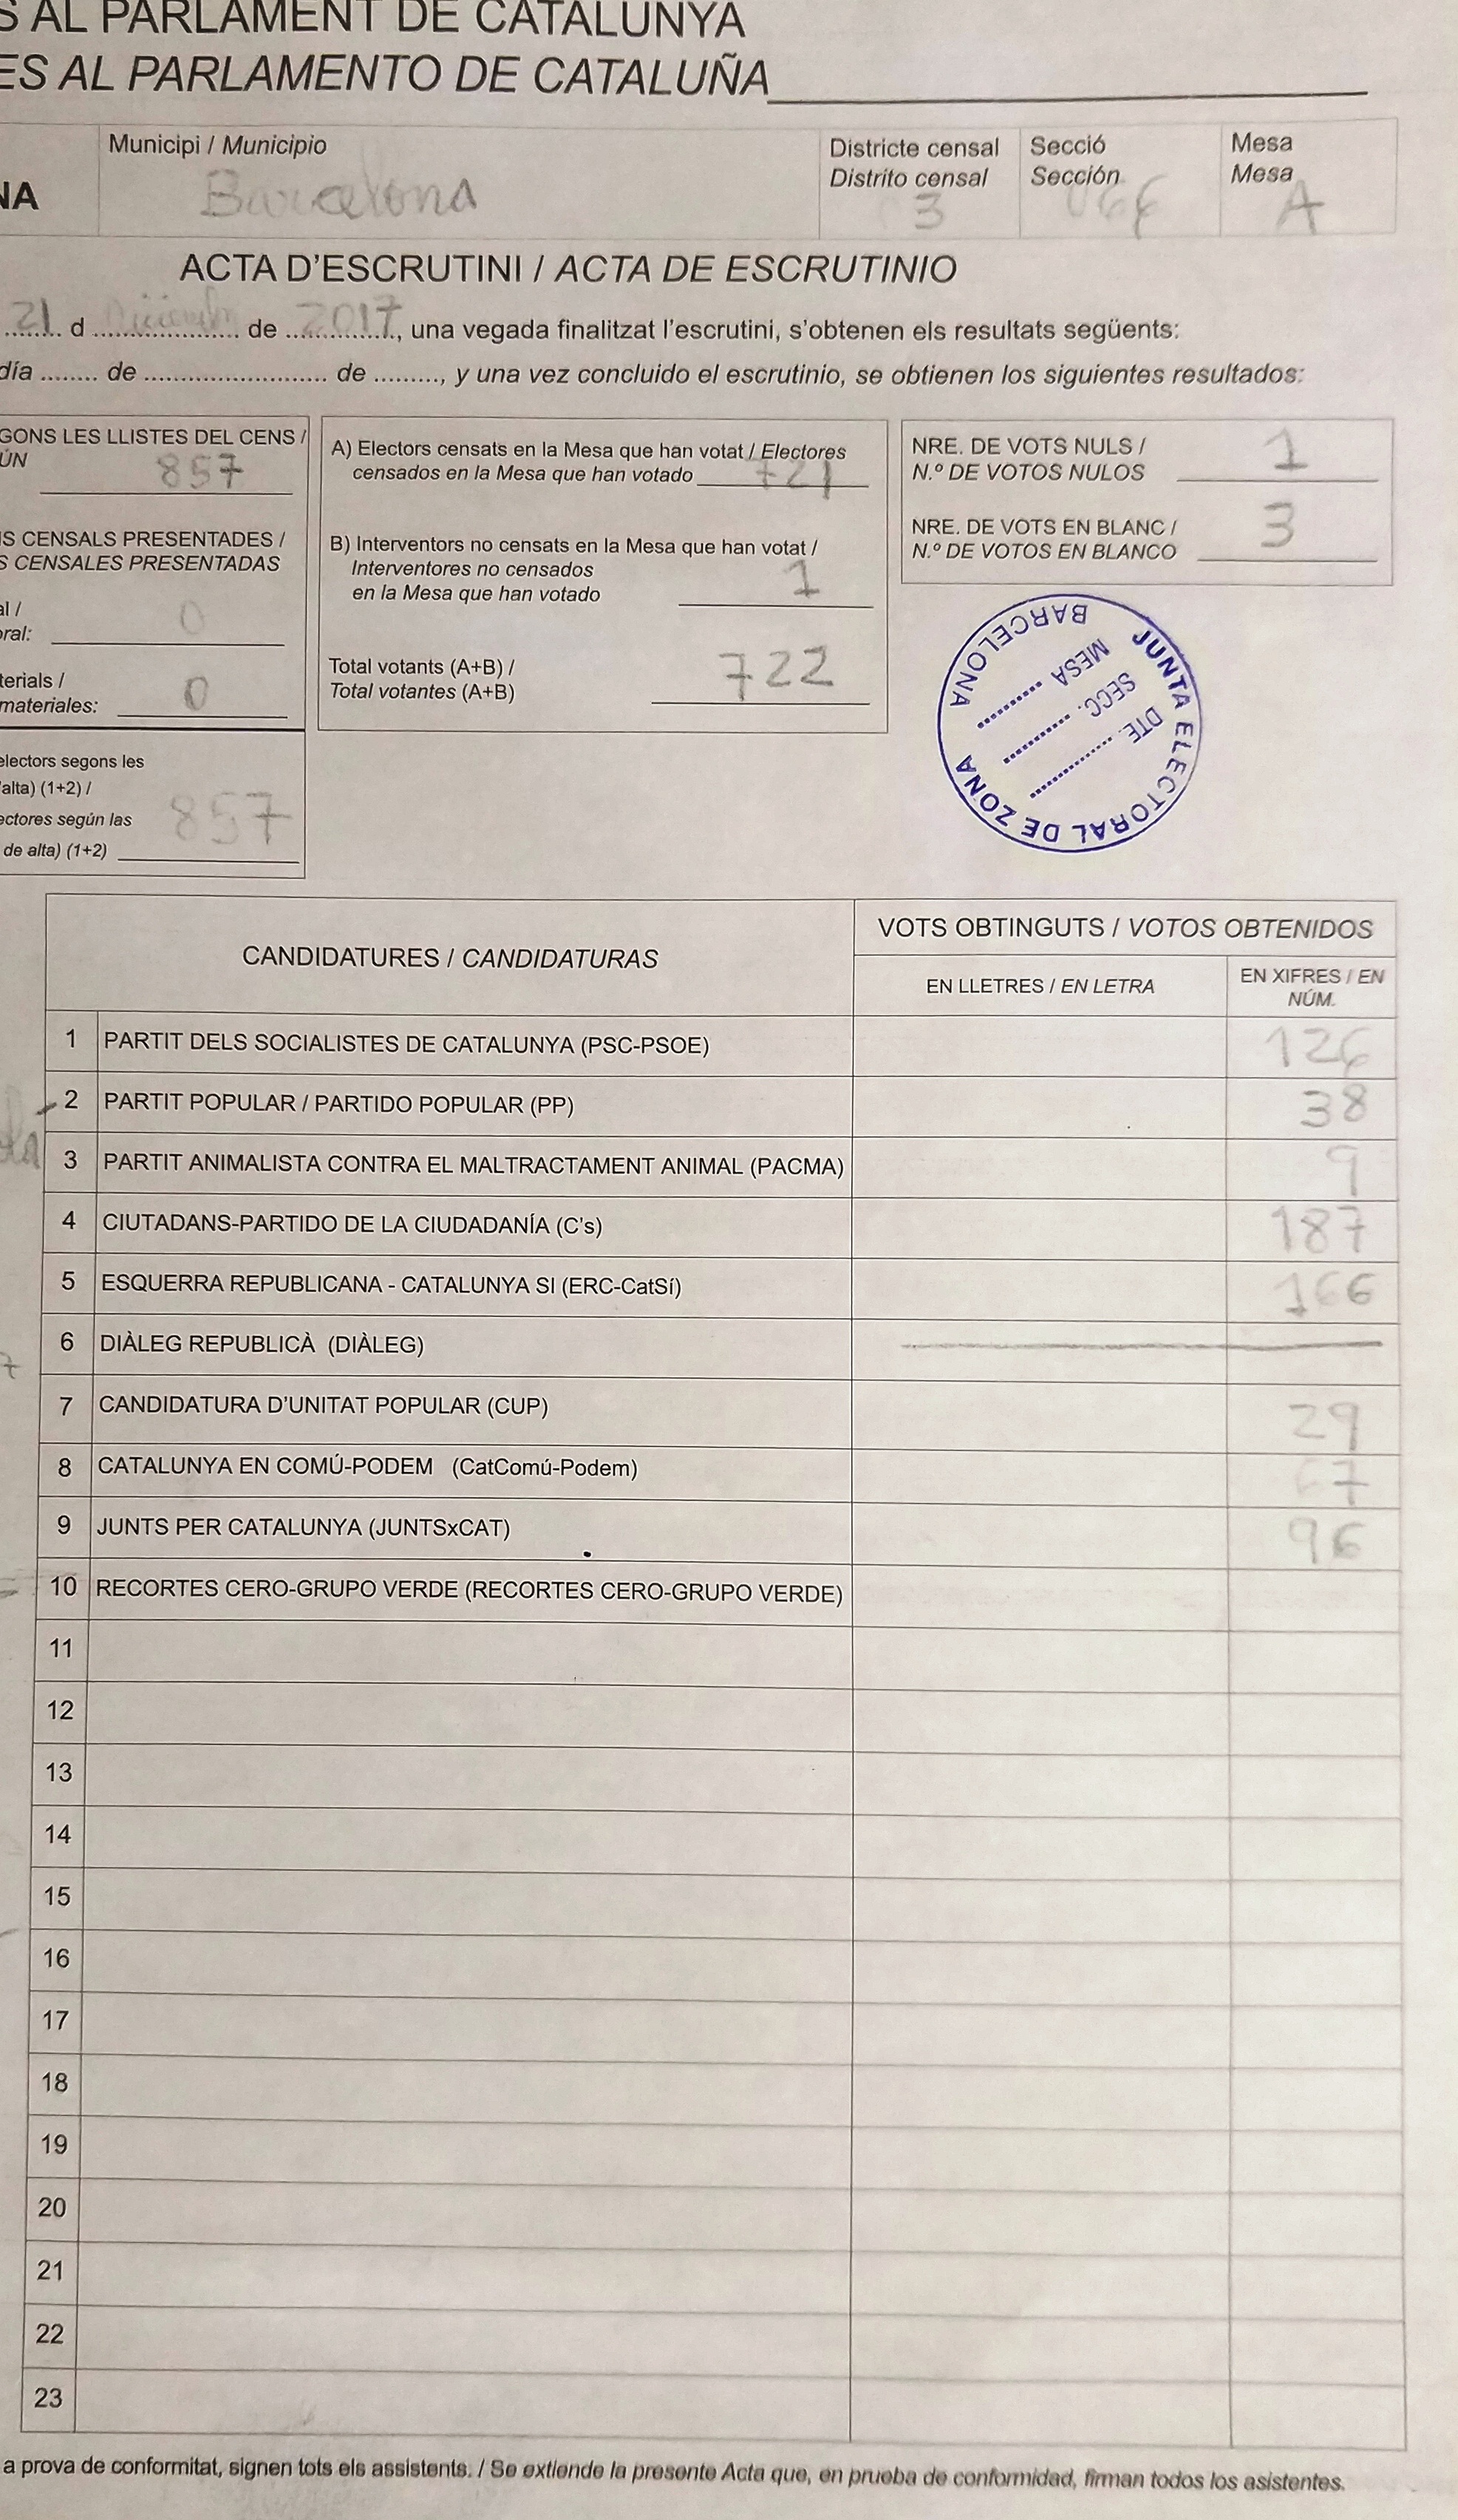 S AL PARLAMENT DE CATALUNYA
ES AL PARLAMENTO DE CATALUÑA
NA
Municipi / Municipio
Barcelona
Districte censal
Distrito censal
3
Secció
Sección
066
Mesa
Mesa
A
ACTA D'ESCRUTINI / ACTA DE ESCRUTINIO
21 d Diciembre de 2017, una vegada finalitzat l'escrutini, s'obtenen els resultats següents:
día ........ de .......................... de ........., y una vez concluido el escrutinio, se obtienen los siguientes resultados:
GONS LES LLISTES DEL CENS /
ÚN
857
S CENSALS PRESENTADES /
S CENSALES PRESENTADAS
al /
oral: 0
terials /
materiales: 0
electors segons les
alta) (1+2) /
ectores según las
de alta) (1+2) 857
A) Electors censats en la Mesa que han votat / Electores
censados en la Mesa que han votado 721
B) Interventors no censats en la Mesa que han votat /
Interventores no censados
en la Mesa que han votado 1
Total votants (A+B) /
Total votantes (A+B) 722
NRE. DE VOTS NULS /
N.º DE VOTOS NULOS 1
NRE. DE VOTS EN BLANC /
N.º DE VOTOS EN BLANCO 3
JUNTA ELECTORAL DE ZONA BARCELONA
DTE. ............
SECC. ............
MESA ............
CANDIDATURES / CANDIDATURAS
VOTS OBTINGUTS / VOTOS OBTENIDOS
EN LLETRES / EN LETRA
EN XIFRES / EN
NÚM.
1 PARTIT DELS SOCIALISTES DE CATALUNYA (PSC-PSOE) 126
2 PARTIT POPULAR / PARTIDO POPULAR (PP) 38
3 PARTIT ANIMALISTA CONTRA EL MALTRACTAMENT ANIMAL (PACMA) 9
4 CIUTADANS-PARTIDO DE LA CIUDADANÍA (C's) 187
5 ESQUERRA REPUBLICANA - CATALUNYA SI (ERC-CatSí) 166
6 DIÀLEG REPUBLICÀ (DIÀLEG)
7 CANDIDATURA D'UNITAT POPULAR (CUP) 29
8 CATALUNYA EN COMÚ-PODEM (CatComú-Podem) 67
9 JUNTS PER CATALUNYA (JUNTSxCAT) 96
10 RECORTES CERO-GRUPO VERDE (RECORTES CERO-GRUPO VERDE)
11
12
13
14
15
16
17
18
19
20
21
22
23
a prova de conformitat, signen tots els assistents. / Se extiende la presente Acta que, en prueba de conformidad, firman todos los asistentes.